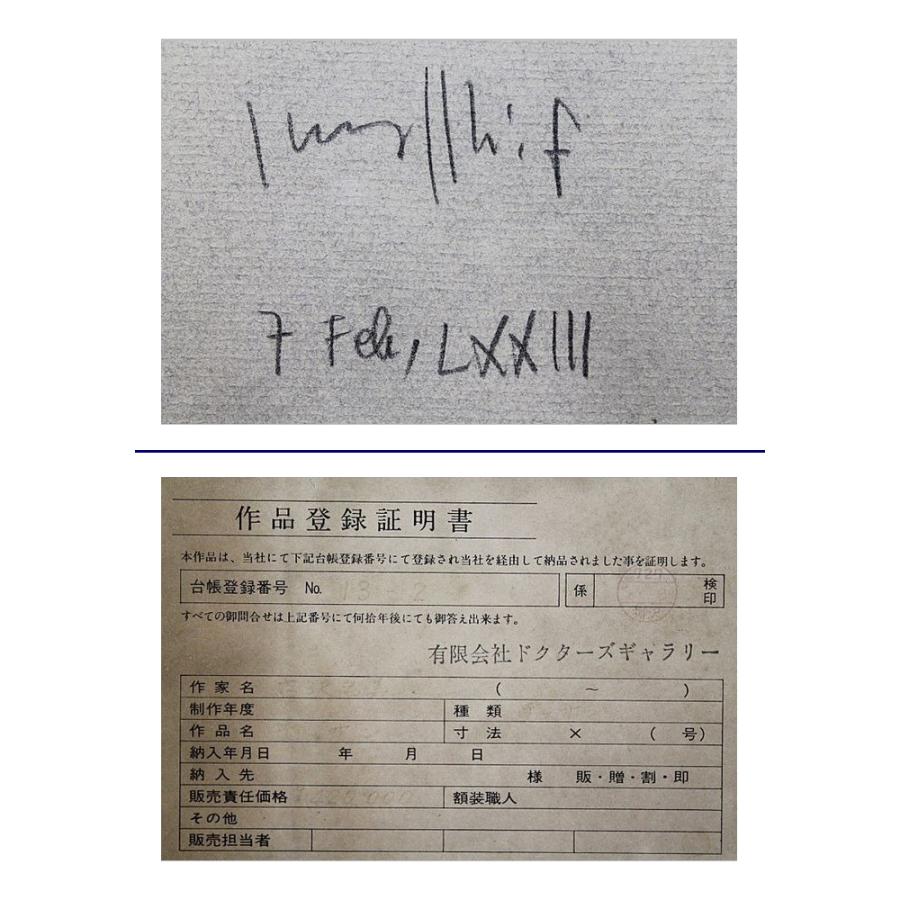 7 Feb, LXXIII
作品登録証明書
本作品は、当社にて下記台帳登録番号にて登録され当社を経由して納品されました事を証明します。
台帳登録番号 No. 係 検印
すべての御問合せは上記番号にて何拾年後にても御答え出来ます。
有限会社ドクターズギャラリー
作家名 ( ~ )
制作年度 種類
作品名 寸法 × ( 号)
納入年月日 年 月 日
納入先 様 販・贈・割・即
販売責任価格 額装職人
その他
販売担当者